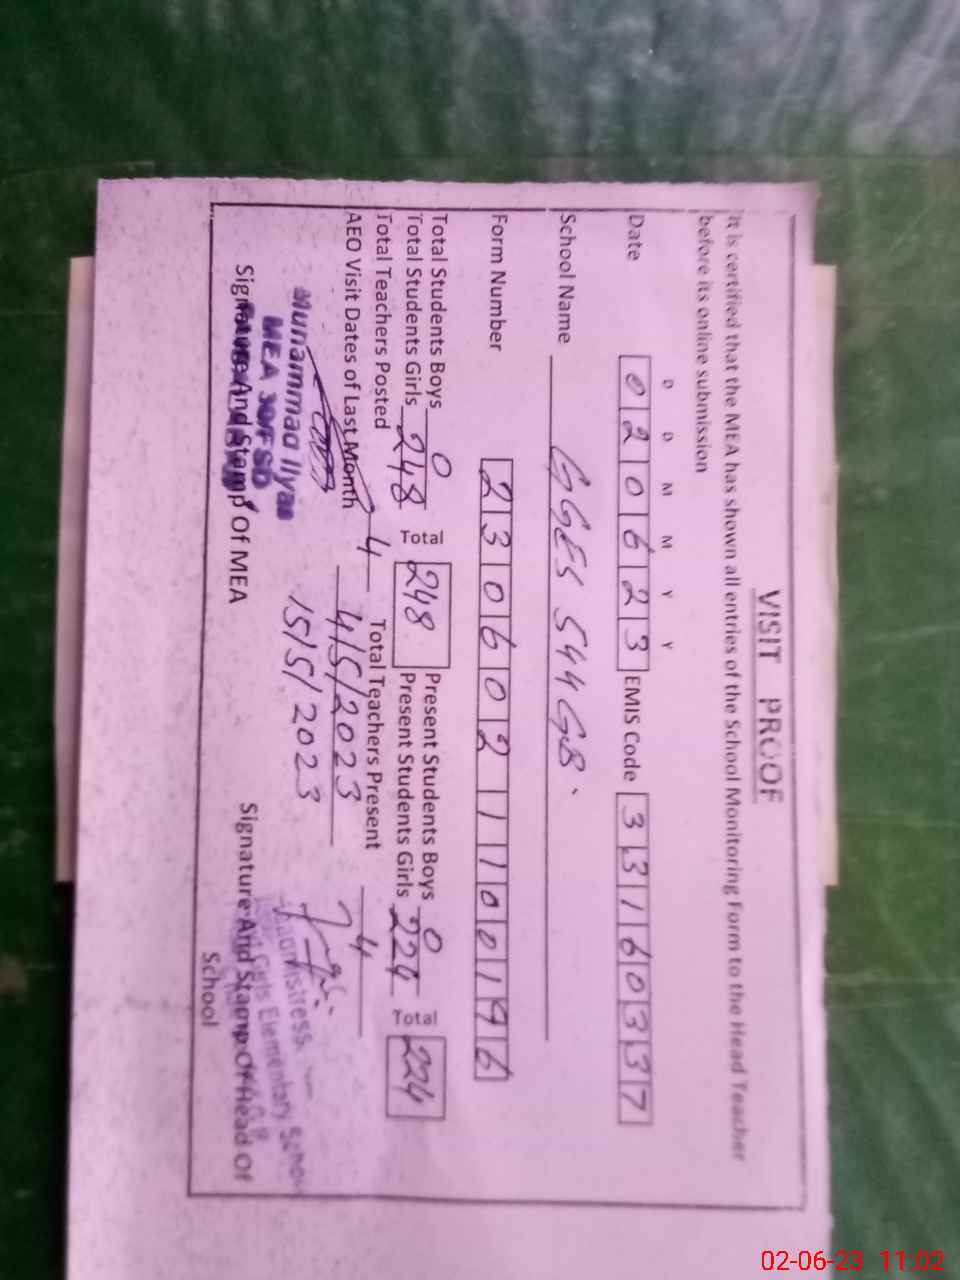 VISIT PROOF
It is certified that the MEA has shown all entries of the School Monitoring Form to the Head Teacher
before its online submission
D D M M Y Y
Date 0 2 0 6 2 3 EMIS Code 3 3 1 6 0 3 3 7
School Name GGES 544 GB.
Form Number 2 3 0 6 0 2 1 1 0 0 1 9 6
Total Students Boys 0 Total 248 Present Students Boys 0 Total 224
Total Students Girls 248 Present Students Girls 224
Total Teachers Posted 4 Total Teachers Present 4
AEO Visit Dates of Last Month 4/5/2023
15/5/2023
Muhammad Ilyas
MEA 30 FSD
Signature And Stamp Of MEA Signature And Stamp Of Head Of
School
Headmistress
Girls Elementary School
02-06-23 11:02